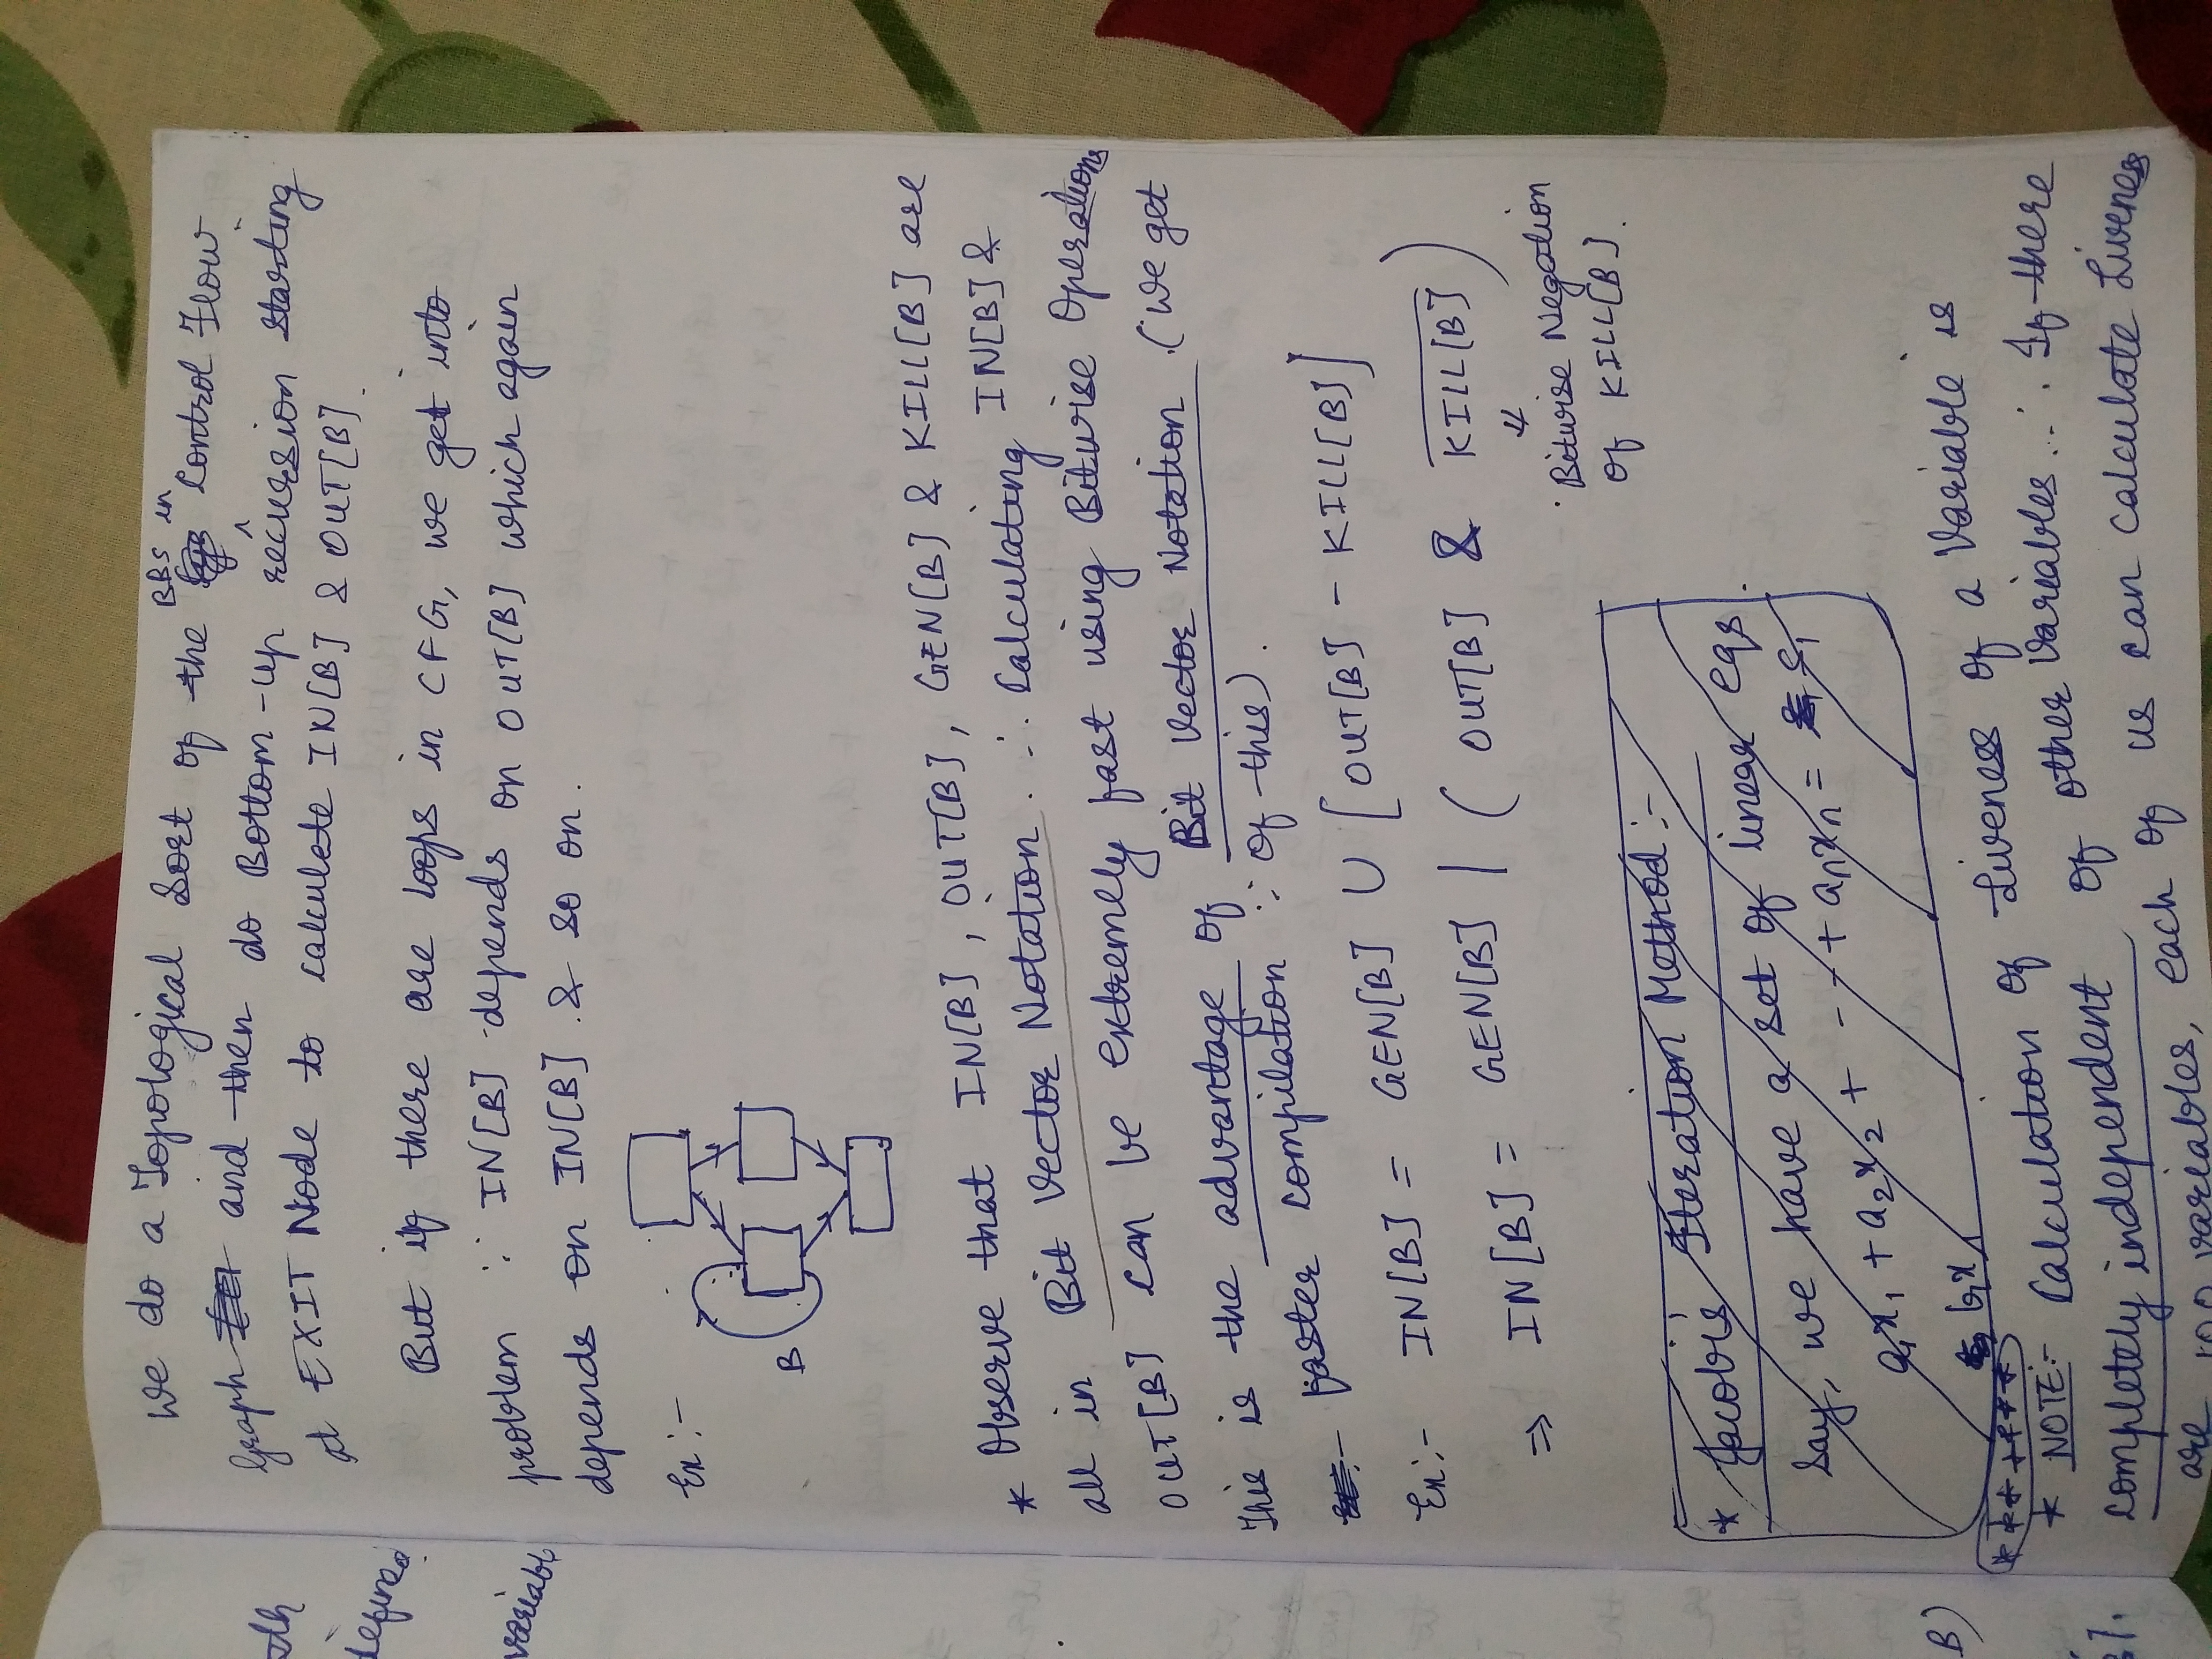 We do a Topological Sort of the BBS in Control Flow
Graph and then do Bottom-up recursion starting
at EXIT Node to calculate IN[B] & OUT[B].
But if there are loops in CFG, we get into
problem ∵ IN[B] depends on OUT[B] which again
depends on IN[B] & so on.
Ex:-
B
* Observe that IN[B], OUT[B], GEN[B] & KILL[B] are
all in Bit Vector Notation. ∴ Calculating IN[B] &
OUT[B] can be extremely fast using Bitwise Operations
This is the advantage of Bit Vector Notation. (We get
faster compilation ∵ of this).
Ex:- IN[B] = GEN[B] ∪ [OUT[B] - KILL[B]]
⇒ IN[B] = GEN[B] | ( OUT[B] & K̅I̅L̅L̅[̅B̅]̅ )
⇓
Bitwise Negation
of KILL[B].
* Jacobi's Iteration Method:-
Say, we have a set of linear eqs.
a₁x₁ + a₂x₂ + --- + aₙxₙ = s₁
b₁x
* * * * * * *
* NOTE:- Calculation of Liveness of a Variable is
completely independent of other Variables. ∴ If there
are 100 variables, each of us can calculate Liveness
zth
defined.
variabl
B)